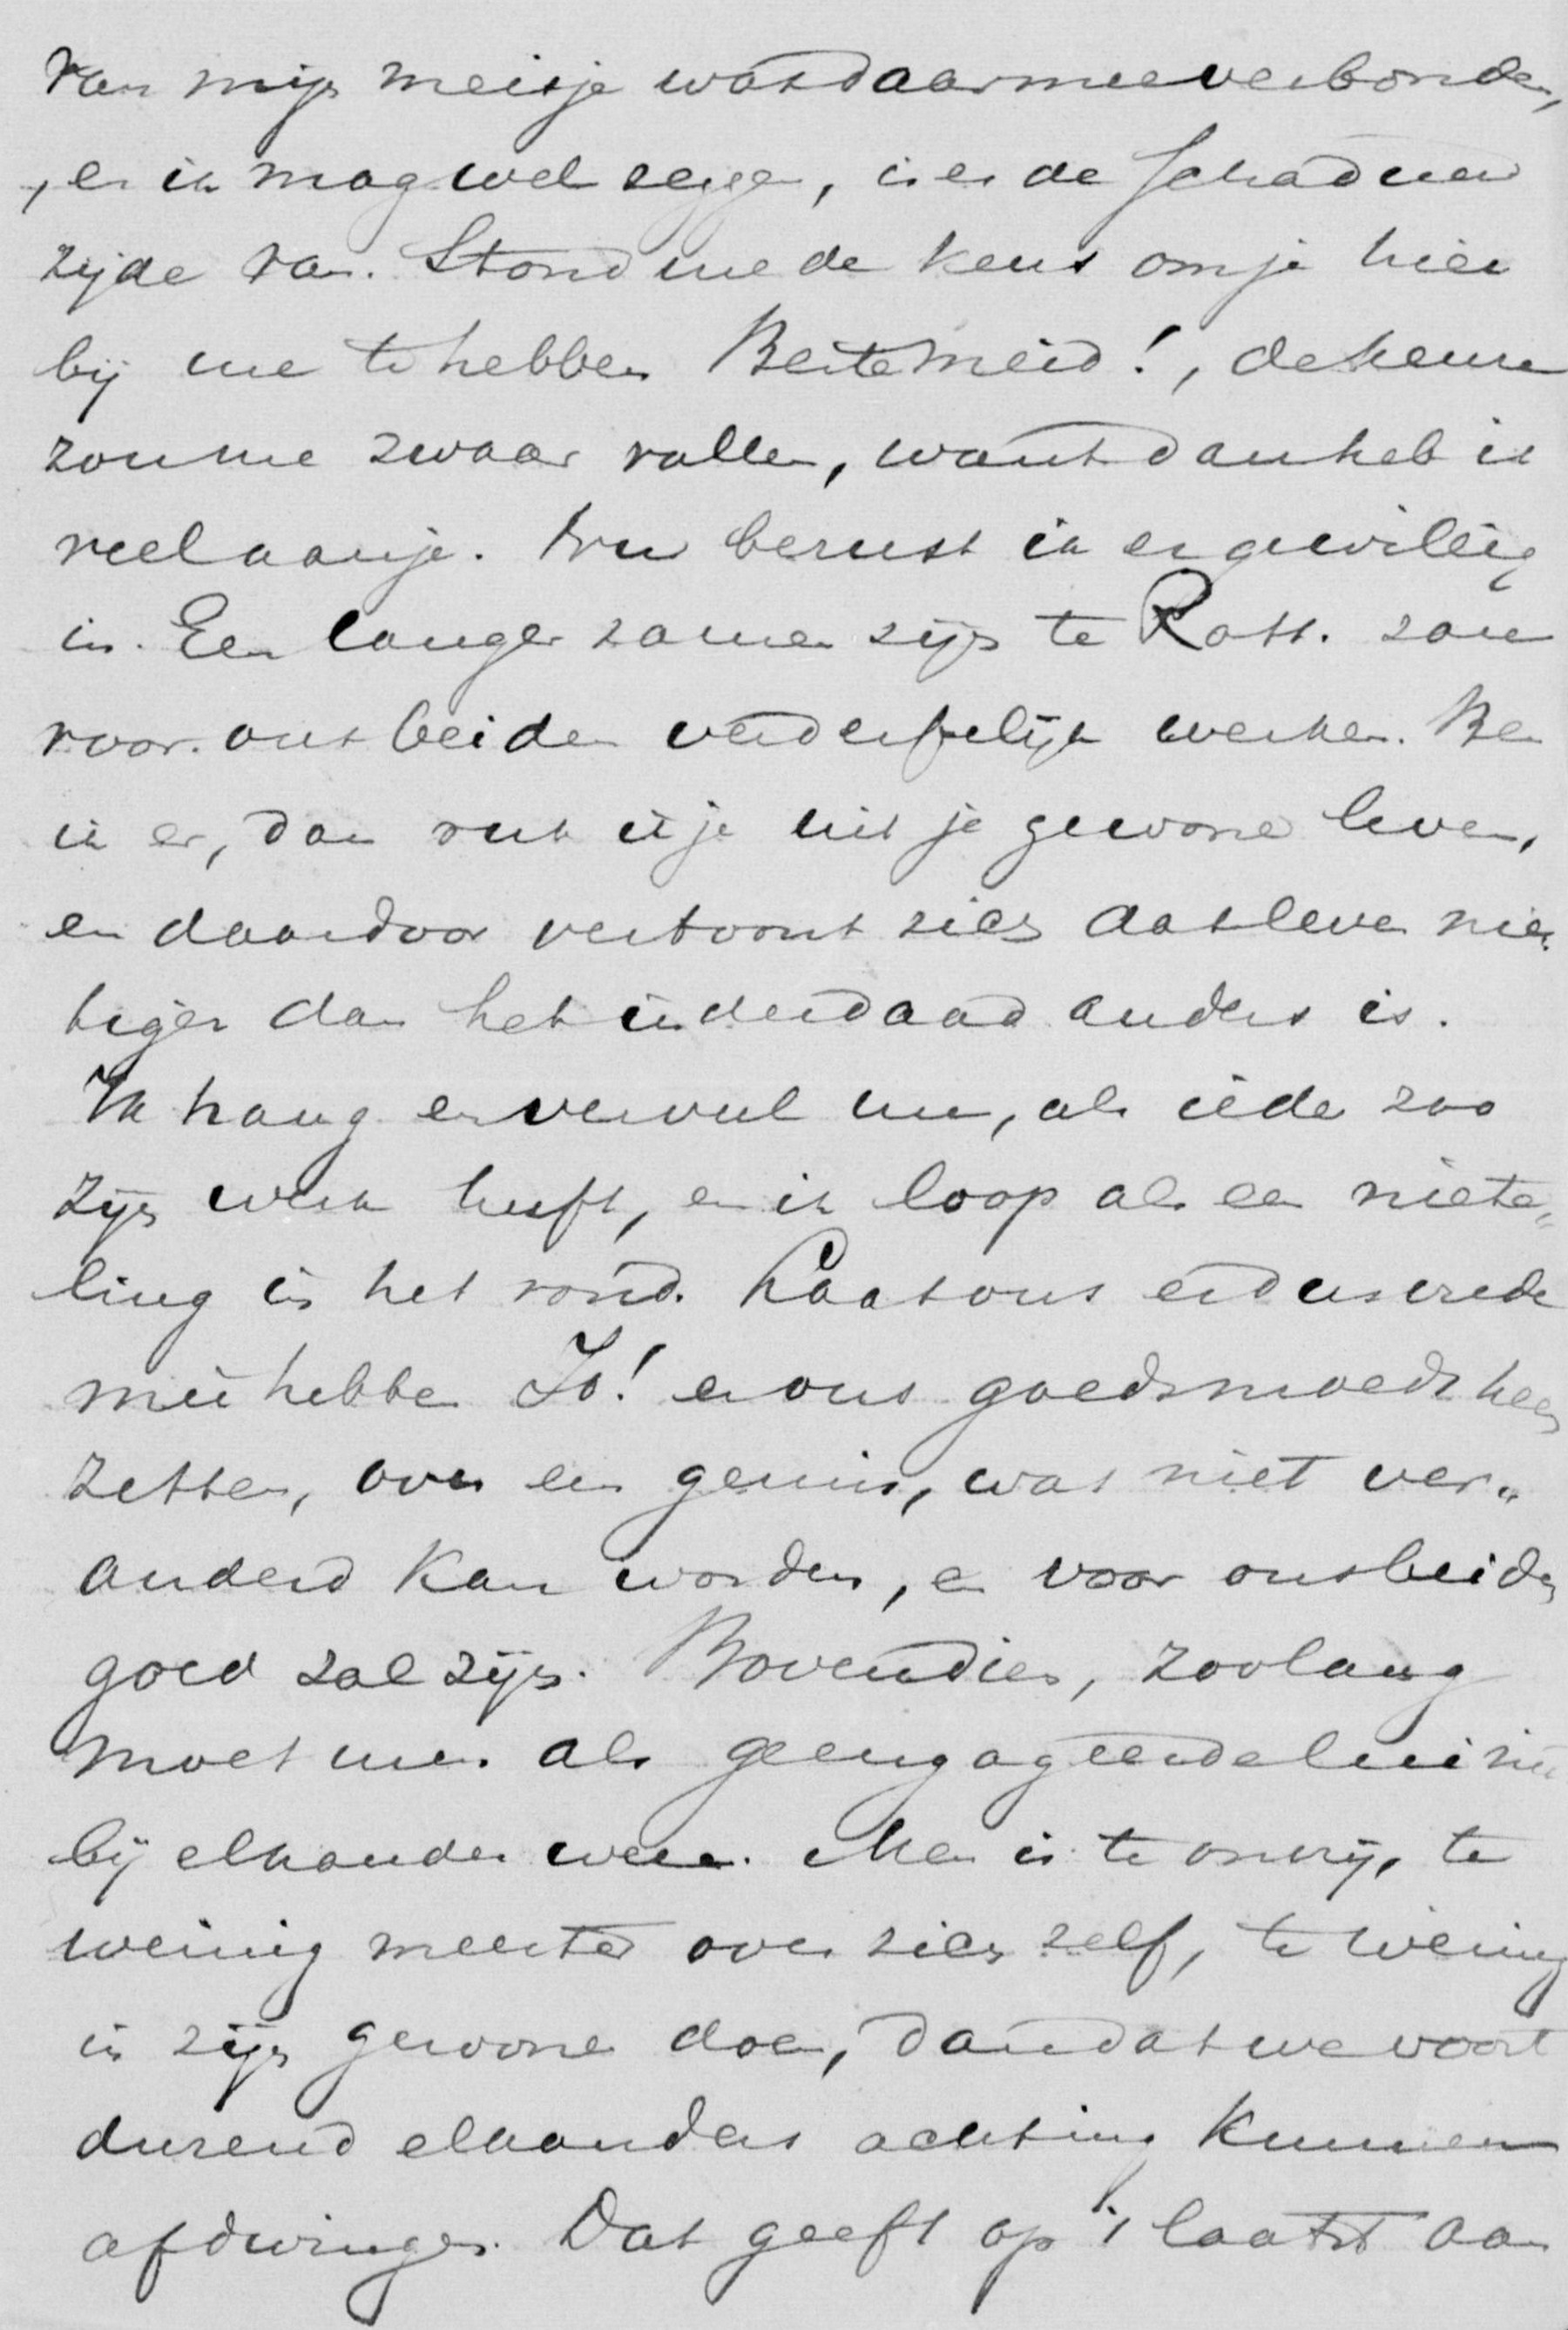 van mijn meisje was daarmee verbonden,
, en ik mag wel zeggen, is er de schaduw
zijde van. Stond me de keus om je hier
bij me te hebben Beste meid!, de keuze
zou me zwaar vallen, want dan heb ik
veel aan je. Nu berust ik er gewillig
in. Een langer zamen zijn te Rott. zou
voor ons beiden verderfelijk werken. Ben
ik er, dan ruk ik je uit je gewone leven,
en daardoor vertoont zich dat leven nie-
tiger dan het inderdaad anders is.
Ik hang en verveel me, als ieder zoo
zijn werk heeft, en ik loop als een niete„
ling in het rond. Laat ons er dus vrede
mee hebben Jo! en ons goedsmoeds heen
zetten, over een gemis, wat niet ver„
anderd kan worden, en voor ons beiden
goed zal zijn. Bovendien, zoolang
moet men als geengageerde lui niet
bij elkander wezen. Men is te onvrij, te
weinig meester over zich zelf, te weinig
in zijn gewone doen, dan dat we voort
durend elkanders achting kunnen
afdwingen. Dat geeft op 't laatst aan